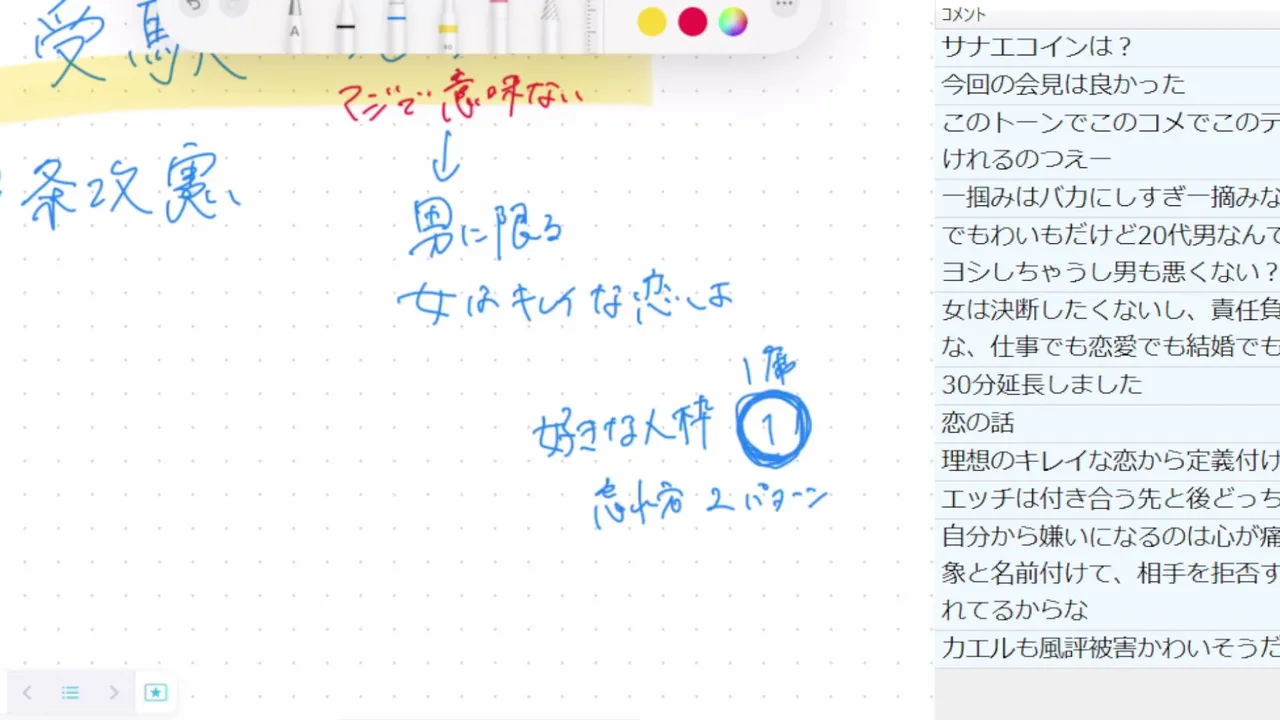 受験
マジで意味ない
条改憲
↓
男に限る
女はキレイな恋しか
1席
好きな人枠 1
忘れ方 2パターン
コメント
サナエコインは？
今回の会見は良かった
このトーンでこのコメでこのテ
けれるのつえー
一掴みはバカにしすぎ一摘みな
でもわいもだけど20代男なんて
ヨシしちゃうし男も悪くない？
女は決断したくないし、責任負
な、仕事でも恋愛でも結婚でも
30分延長しました
恋の話
理想のキレイな恋から定義付け
エッチは付き合う先と後どっち
自分から嫌いになるのは心が痛
象と名前付けて、相手を拒否す
れてるからな
カエルも風評被害かわいそうだ